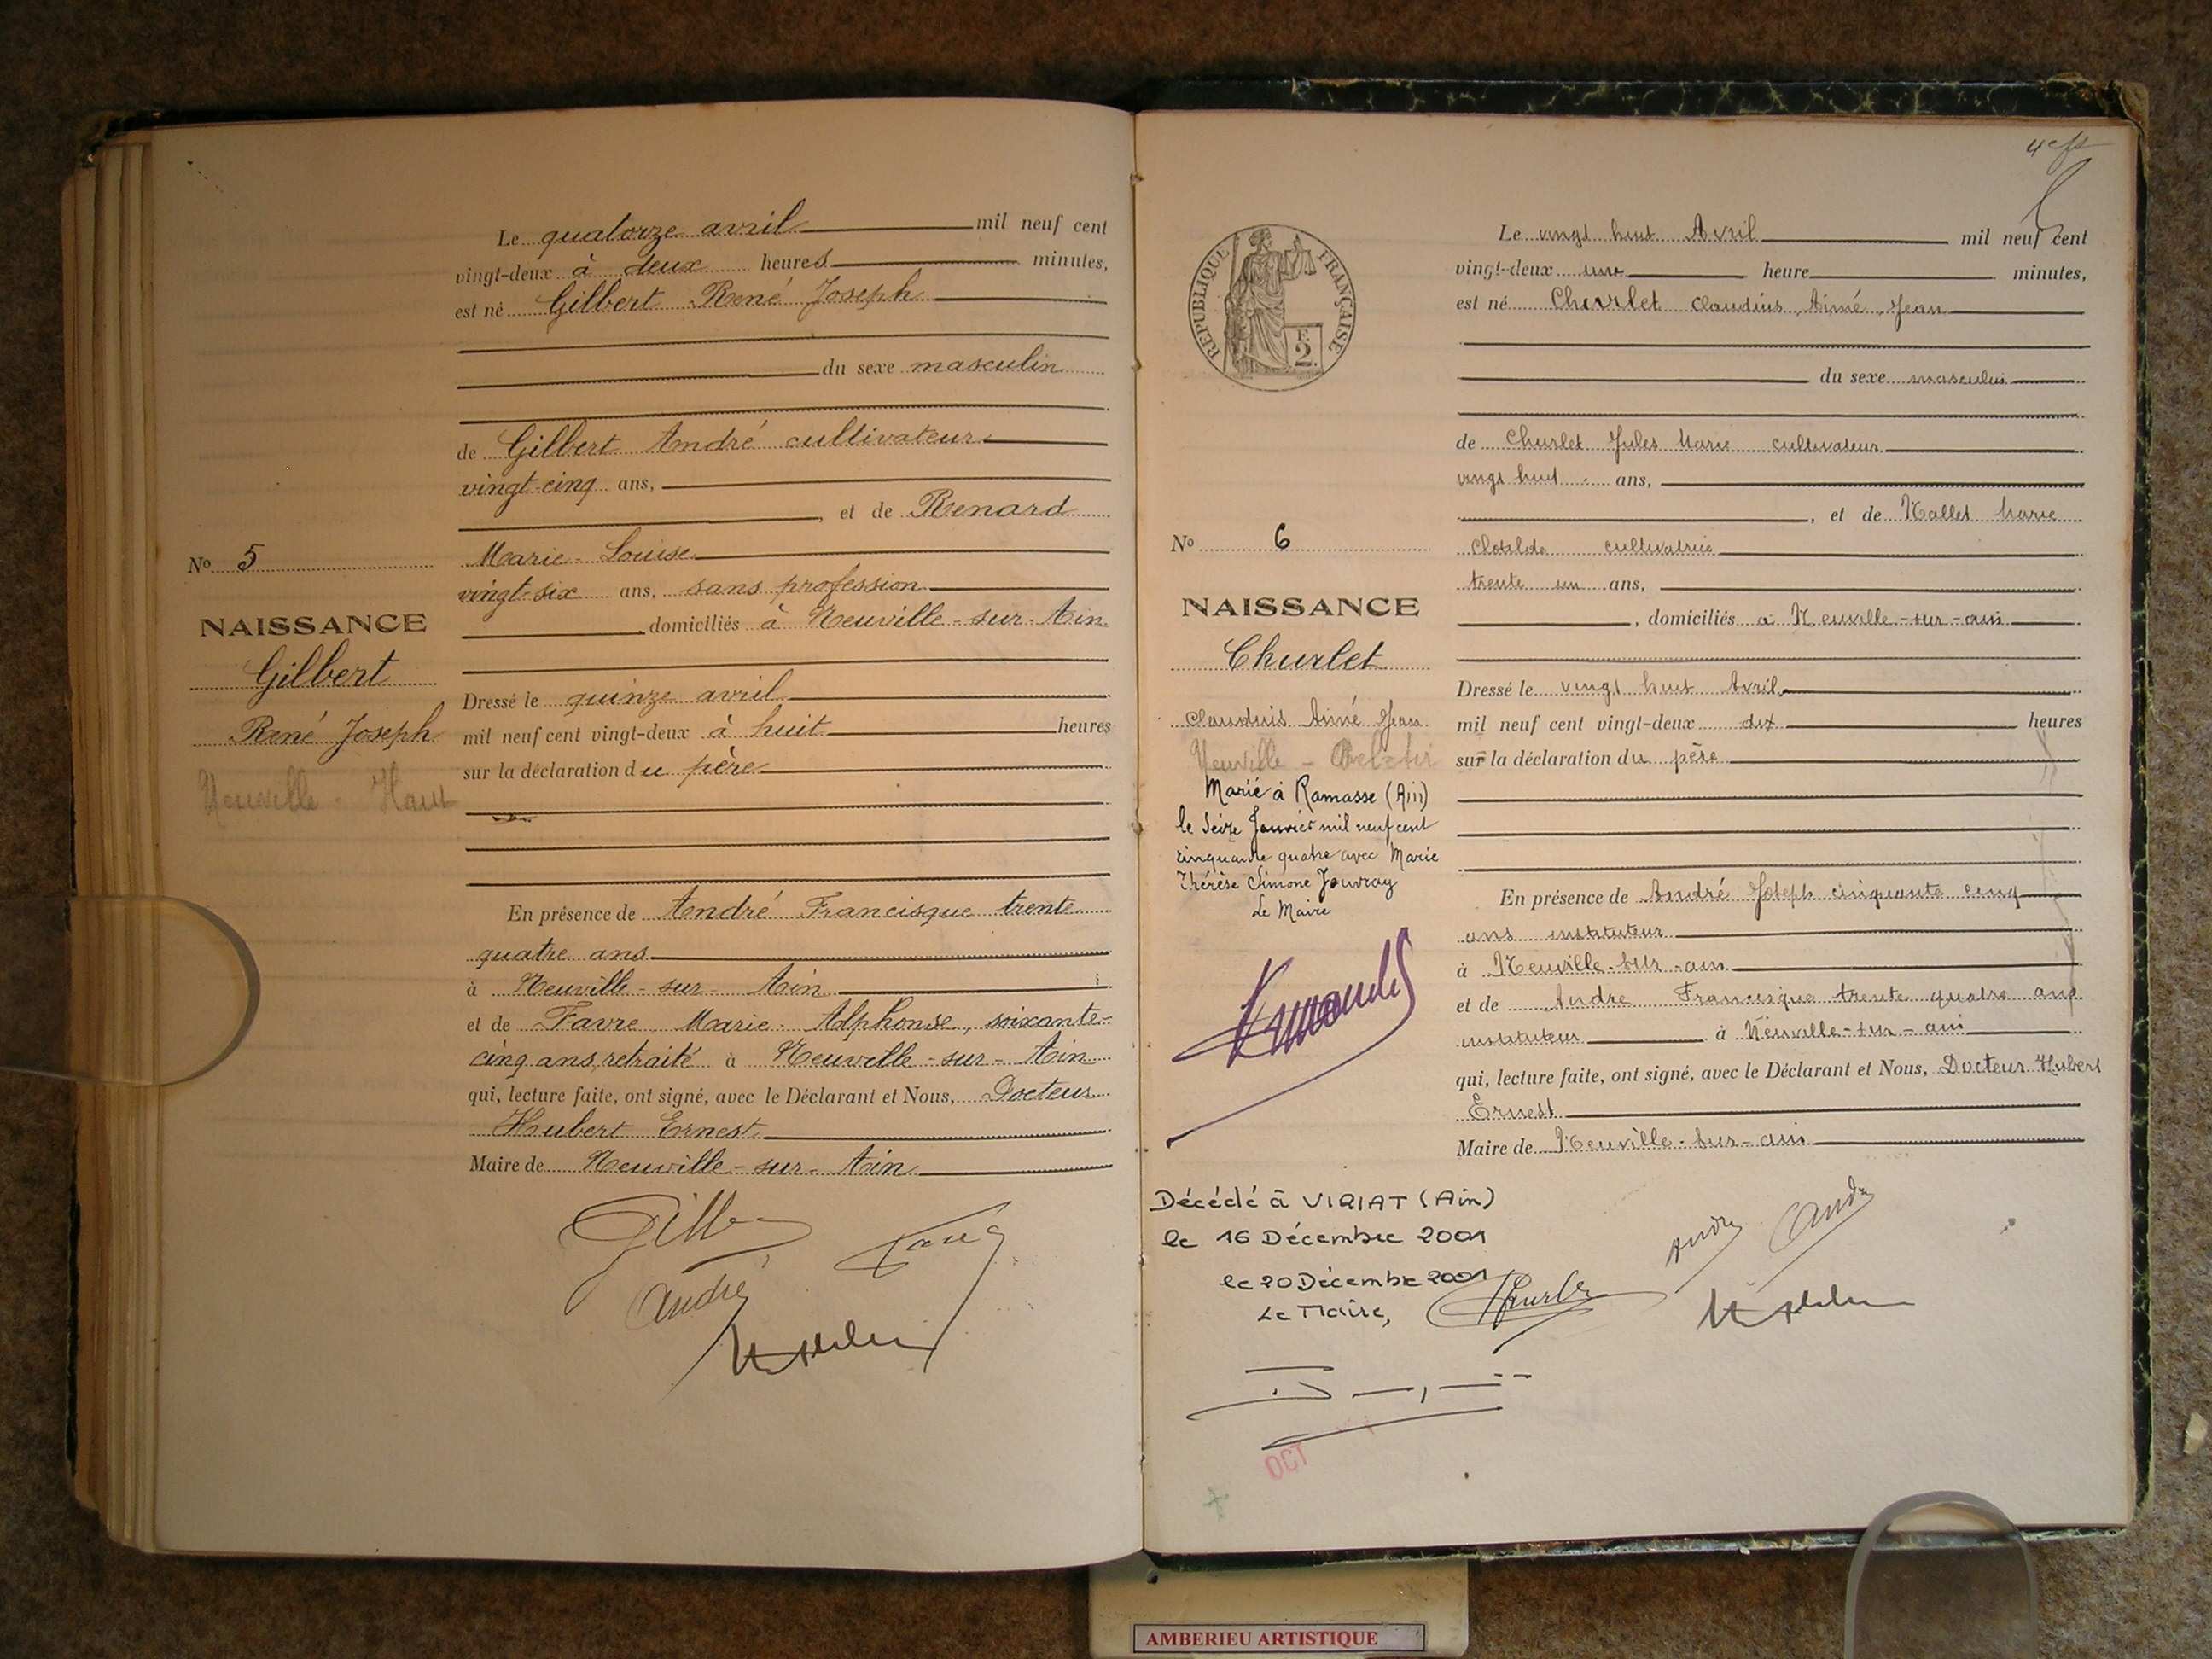 Le quatorze avril mil neuf cent
vingt-deux à deux heures minutes,
est né Gilbert René Joseph
du sexe masculin
de Gilbert André cultivateur
vingt-cinq ans,
, et de Renard
Marie-Louise
vingt-six ans, sans profession
domiciliés à Neuville-sur-Ain
Dressé le quinze avril
mil neuf cent vingt-deux à huit heures
sur la déclaration du père
En présence de André Francisque trente
quatre ans
à Neuville-sur-Ain
et de Favre Marie-Alphonse, soixante-
cinq ans, retraité à Neuville-sur-Ain
qui, lecture faite, ont signé, avec le Déclarant et Nous, Docteur
Hubert Ernest
Maire de Neuville-sur-Ain
André
No 5
NAISSANCE
Gilbert
René Joseph
Neuville-Haut
Le vingt huit Avril mil neuf cent
vingt-deux une heure minutes,
est né Churlet Claudius, Aimé, Jean
du sexe masculin
de Churlet Jules Marie cultivateur
vingt huit ans,
, et de Nallet Marie
Clotilde cultivatrice
trente un ans,
, domiciliés à Neuville-sur-ain
Dressé le vingt huit Avril
mil neuf cent vingt-deux dix heures
sur la déclaration du père
En présence de André Joseph cinquante cinq
ans instituteur
à Neuville-sur-ain
et de André Francisque trente quatre ans
instituteur à Neuville-sur-ain
qui, lecture faite, ont signé, avec le Déclarant et Nous, Docteur Hubert
Ernest
Maire de Neuville-sur-ain
REPUBLIQUE FRANÇAISE
F.
2
No 6
NAISSANCE
Churlet
Claudius Aimé Jean
Neuville
Marié à Ramasse (Ain)
le Seize Janvier mil neuf cent
cinquante quatre avec Marie
Thérèse Simone Jouvray
Le Maire
Décédé à VIRIAT (Ain)
le 16 Décembre 2001
le 20 Décembre 2001
Le Maire,
OCT
AMBERIEU ARTISTIQUE